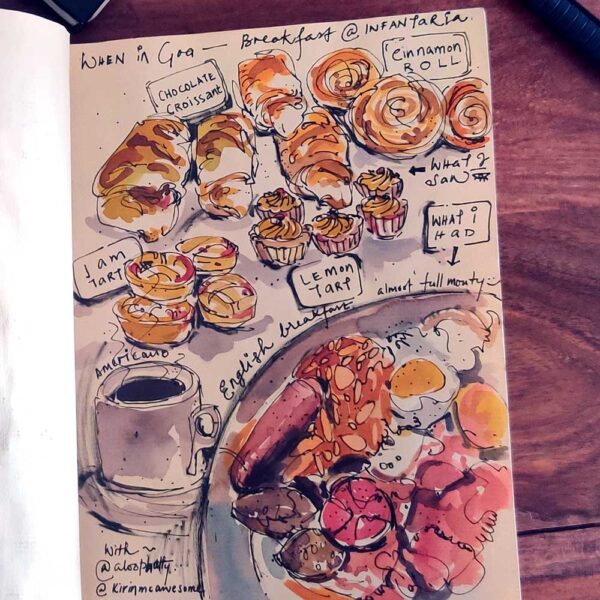 WHEN in Goa — Breakfast @ INFANTARIA.
CHOCOLATE
Croissant
Cinnamon
ROLL
← WHAT I
saw
WHAT i
HAD
JAM
TART
LEMON
TART
almost 'full monty'..
English breakfast
AMERICANO
With ~
@
@ Kirinmcawesome